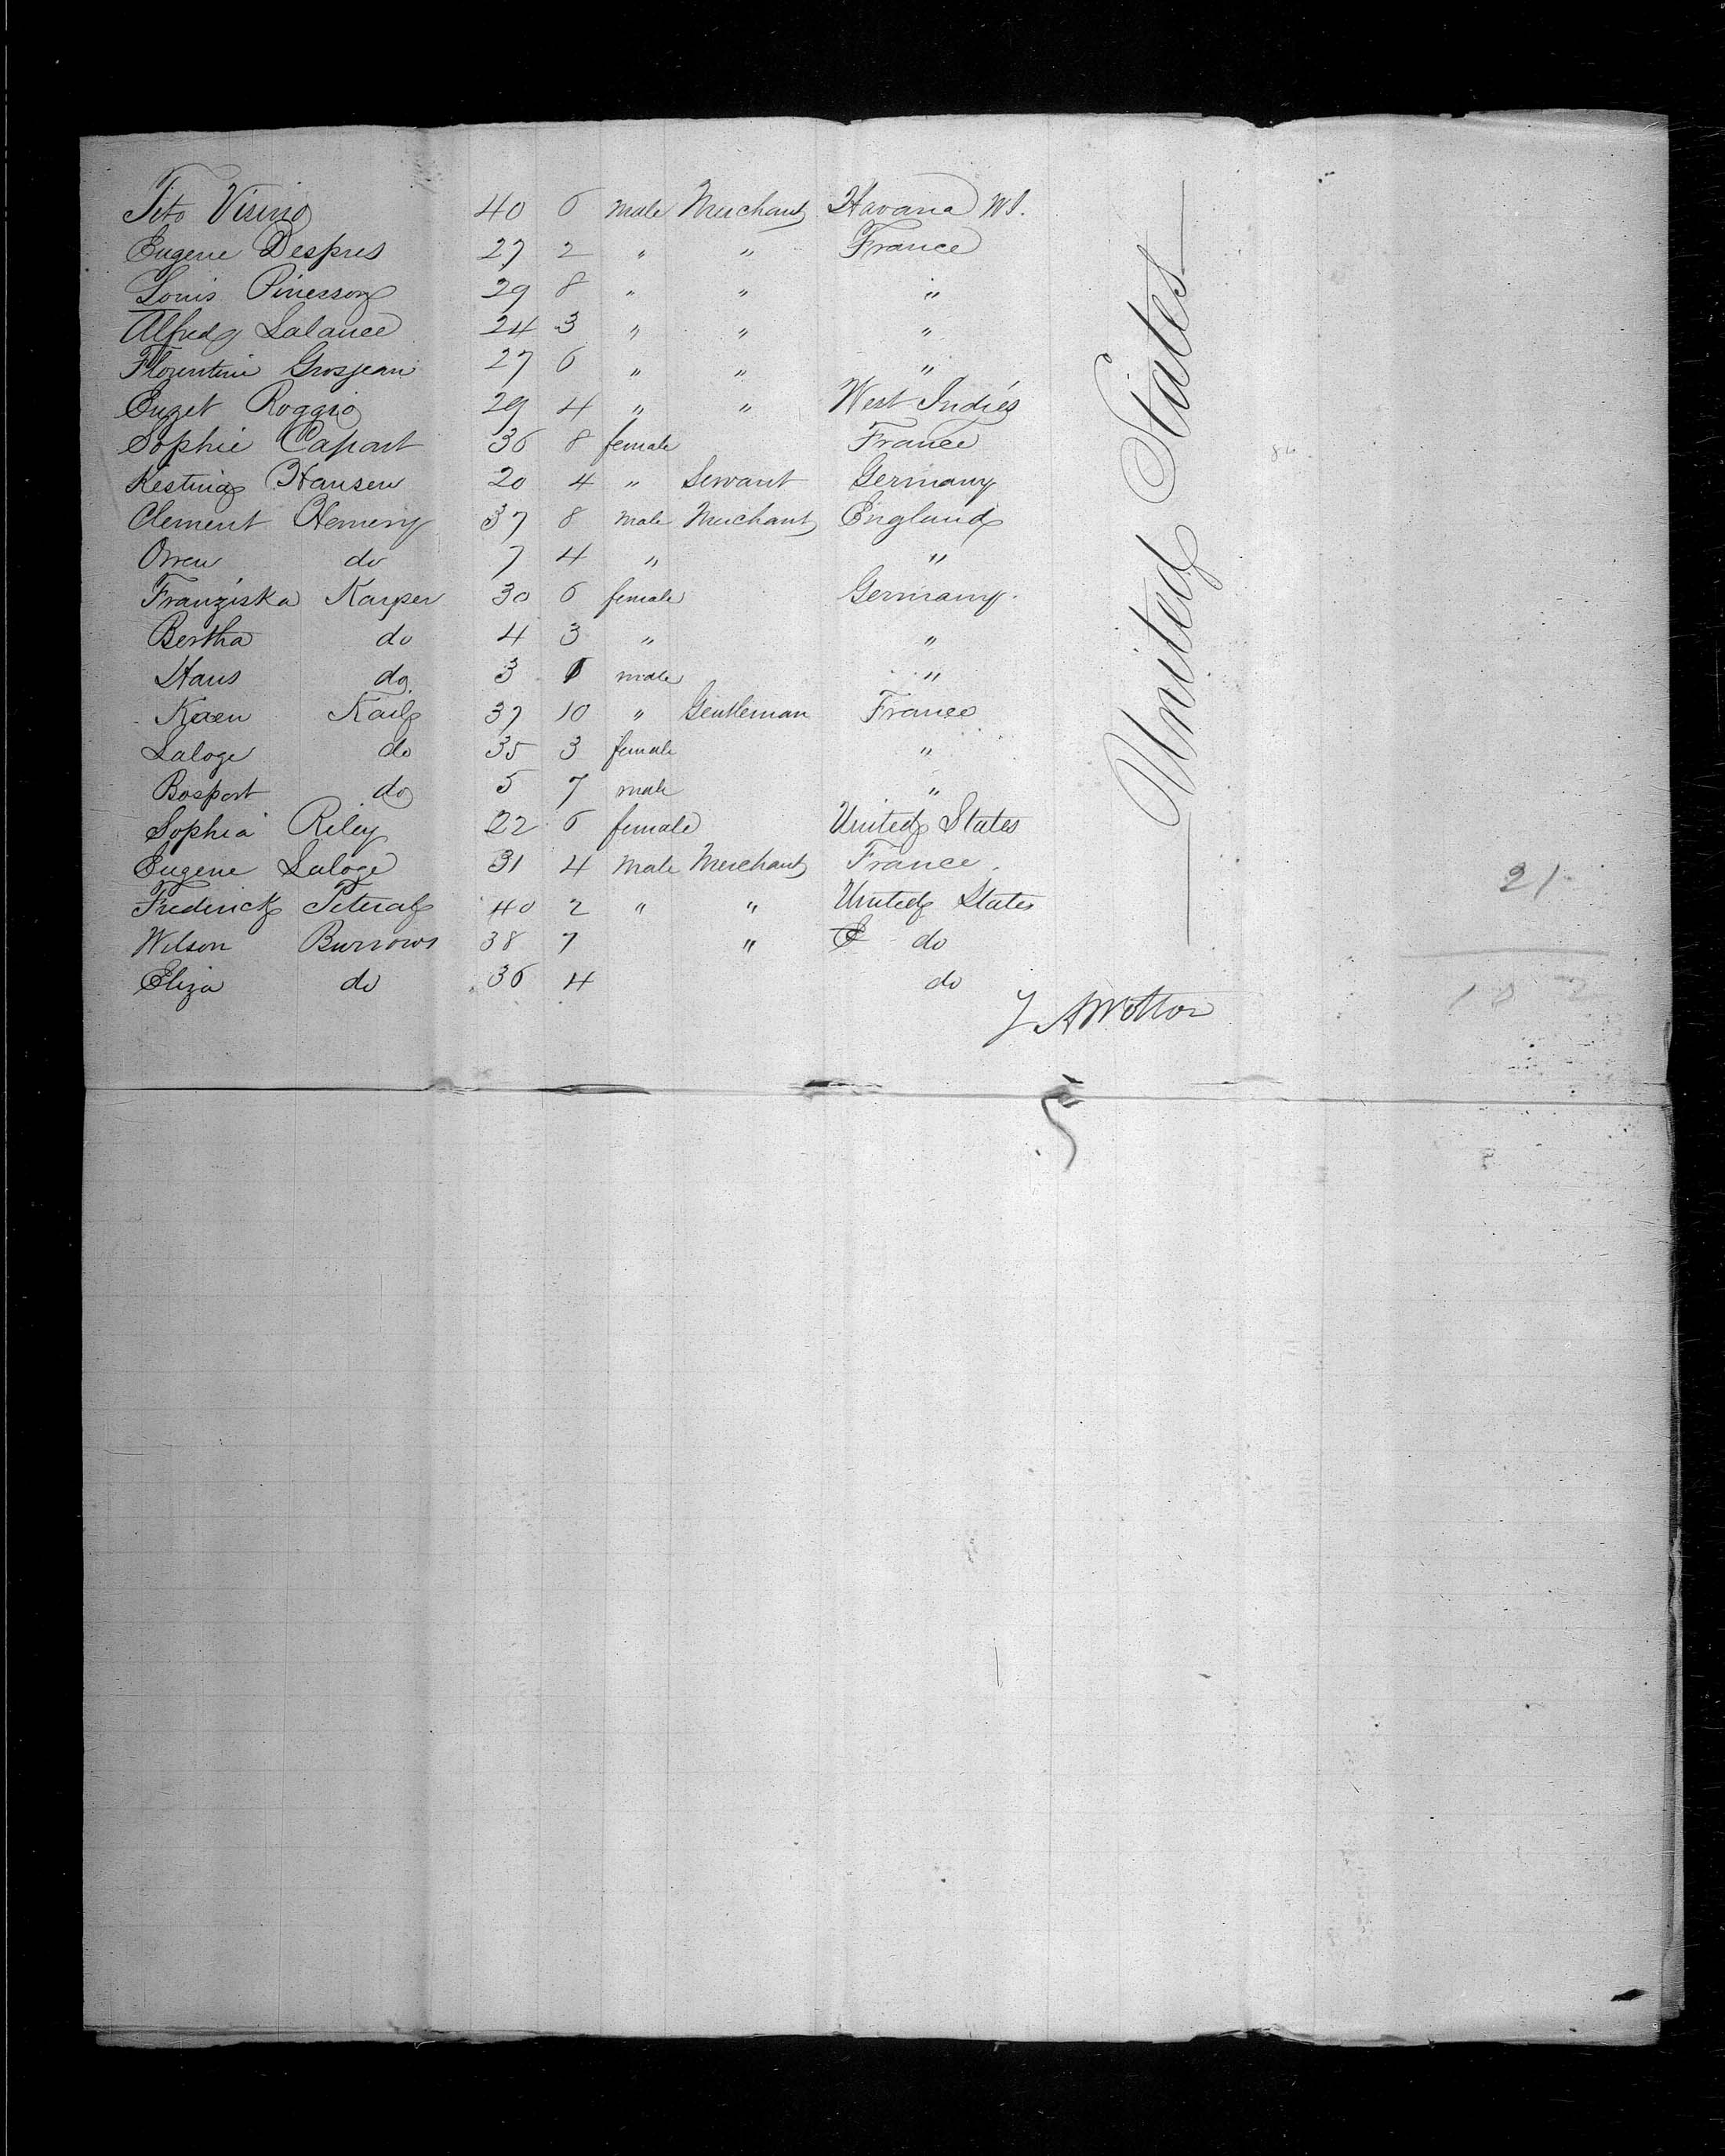 Tito Visino 40 6 male Merchant Havana W I.
Eugene Despres 27 2 " " France
Louis Pinesson 29 8 " " "
Alfred Lalance 24 3 " " "
Florentine Grosjean 27 6 " " "
Enget Roggio 29 4 " " West Indies
Sophie Capart 36 8 female France
Kestina Hansen 20 4 " Servant Germany
Clement Hemery 37 8 male Merchant England
Orren do 7 4 " "
Franziska Karper 30 6 female Germany.
Bertha do 4 3 " "
Hans do 3 6 male "
Kaen Kail 37 10 " Gentleman France
Laloge do 35 3 female "
Bosport do 5 7 male "
Sophia Riley 22 6 female United States
Eugene Laloge 31 4 male Merchant France.
Frederick 40 2 " " United States
Wilson Burrows 38 7 " do
Eliza do 36 4 do
United States
J A Wotton
21